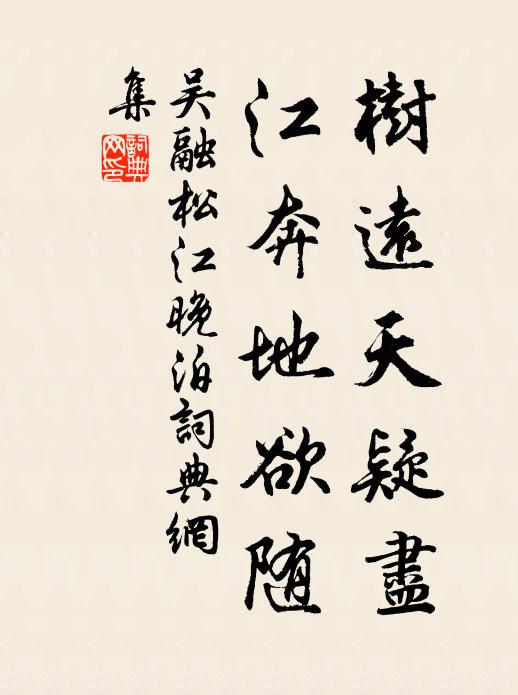 樹遠天疑盡
江奔地欲随
吳融松江晚泊詞典網
集
詞典
网印